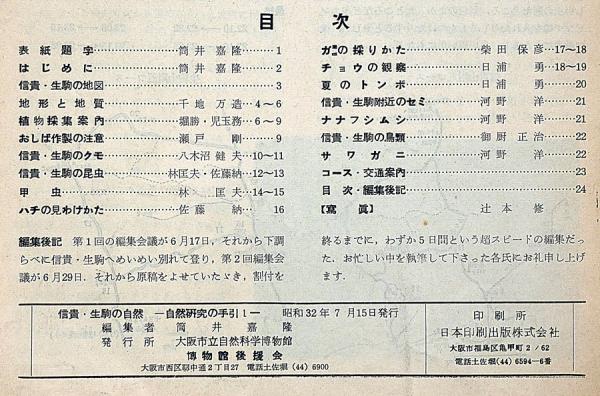 目次
表紙題字 筒井嘉隆 1
はじめに 筒井嘉隆 2
信貴・生駒の地図 3
地形と地質 千地万造 4〜6
植物採集案内 堀勝・児玉務 6〜9
おしば作製の注意 瀬戸剛 9
信貴・生駒のクモ 八木沼健夫 10〜11
信貴・生駒の昆虫 林匡夫・佐藤納 12〜13
甲虫 林匡夫 14〜15
ハチの見わけかた 佐藤納 16
ガの採りかた 柴田保彦 17〜18
チョウの観察 日浦勇 18〜19
夏のトンボ 日浦勇 20
信貴・生駒附近のセミ 河野洋 21
ナナフシムシ 河野洋 21
信貴・生駒の鳥類 御厨正治 22
サワガニ 河野洋 22
コース・交通案内 23
目次・編集後記 24
【寫眞】 辻本修
編集後記 第1回の編集会議が6月17日、それから下調
らべに信貴・生駒へめいめい別れて登り，第2回編集会
議が6月29日、それから原稿をよせていたゞき，割付を
終るまでに，わずか5日間という超スピードの編集だっ
た．お忙しい中を執筆して下さった各氏にお礼申し上げ
ます．
信貴・生駒の自然 —自然研究の手引1— 昭和32年7月15日発行
編集者 筒井嘉隆
発行所 大阪市立自然科学博物館
博物館後援会
大阪市西区靭中通2丁目27 電話土佐堀(44)6900
印刷所
日本印刷出版株式会社
大阪市福島区亀甲町2/62
電話土佐堀(44)6594—6番